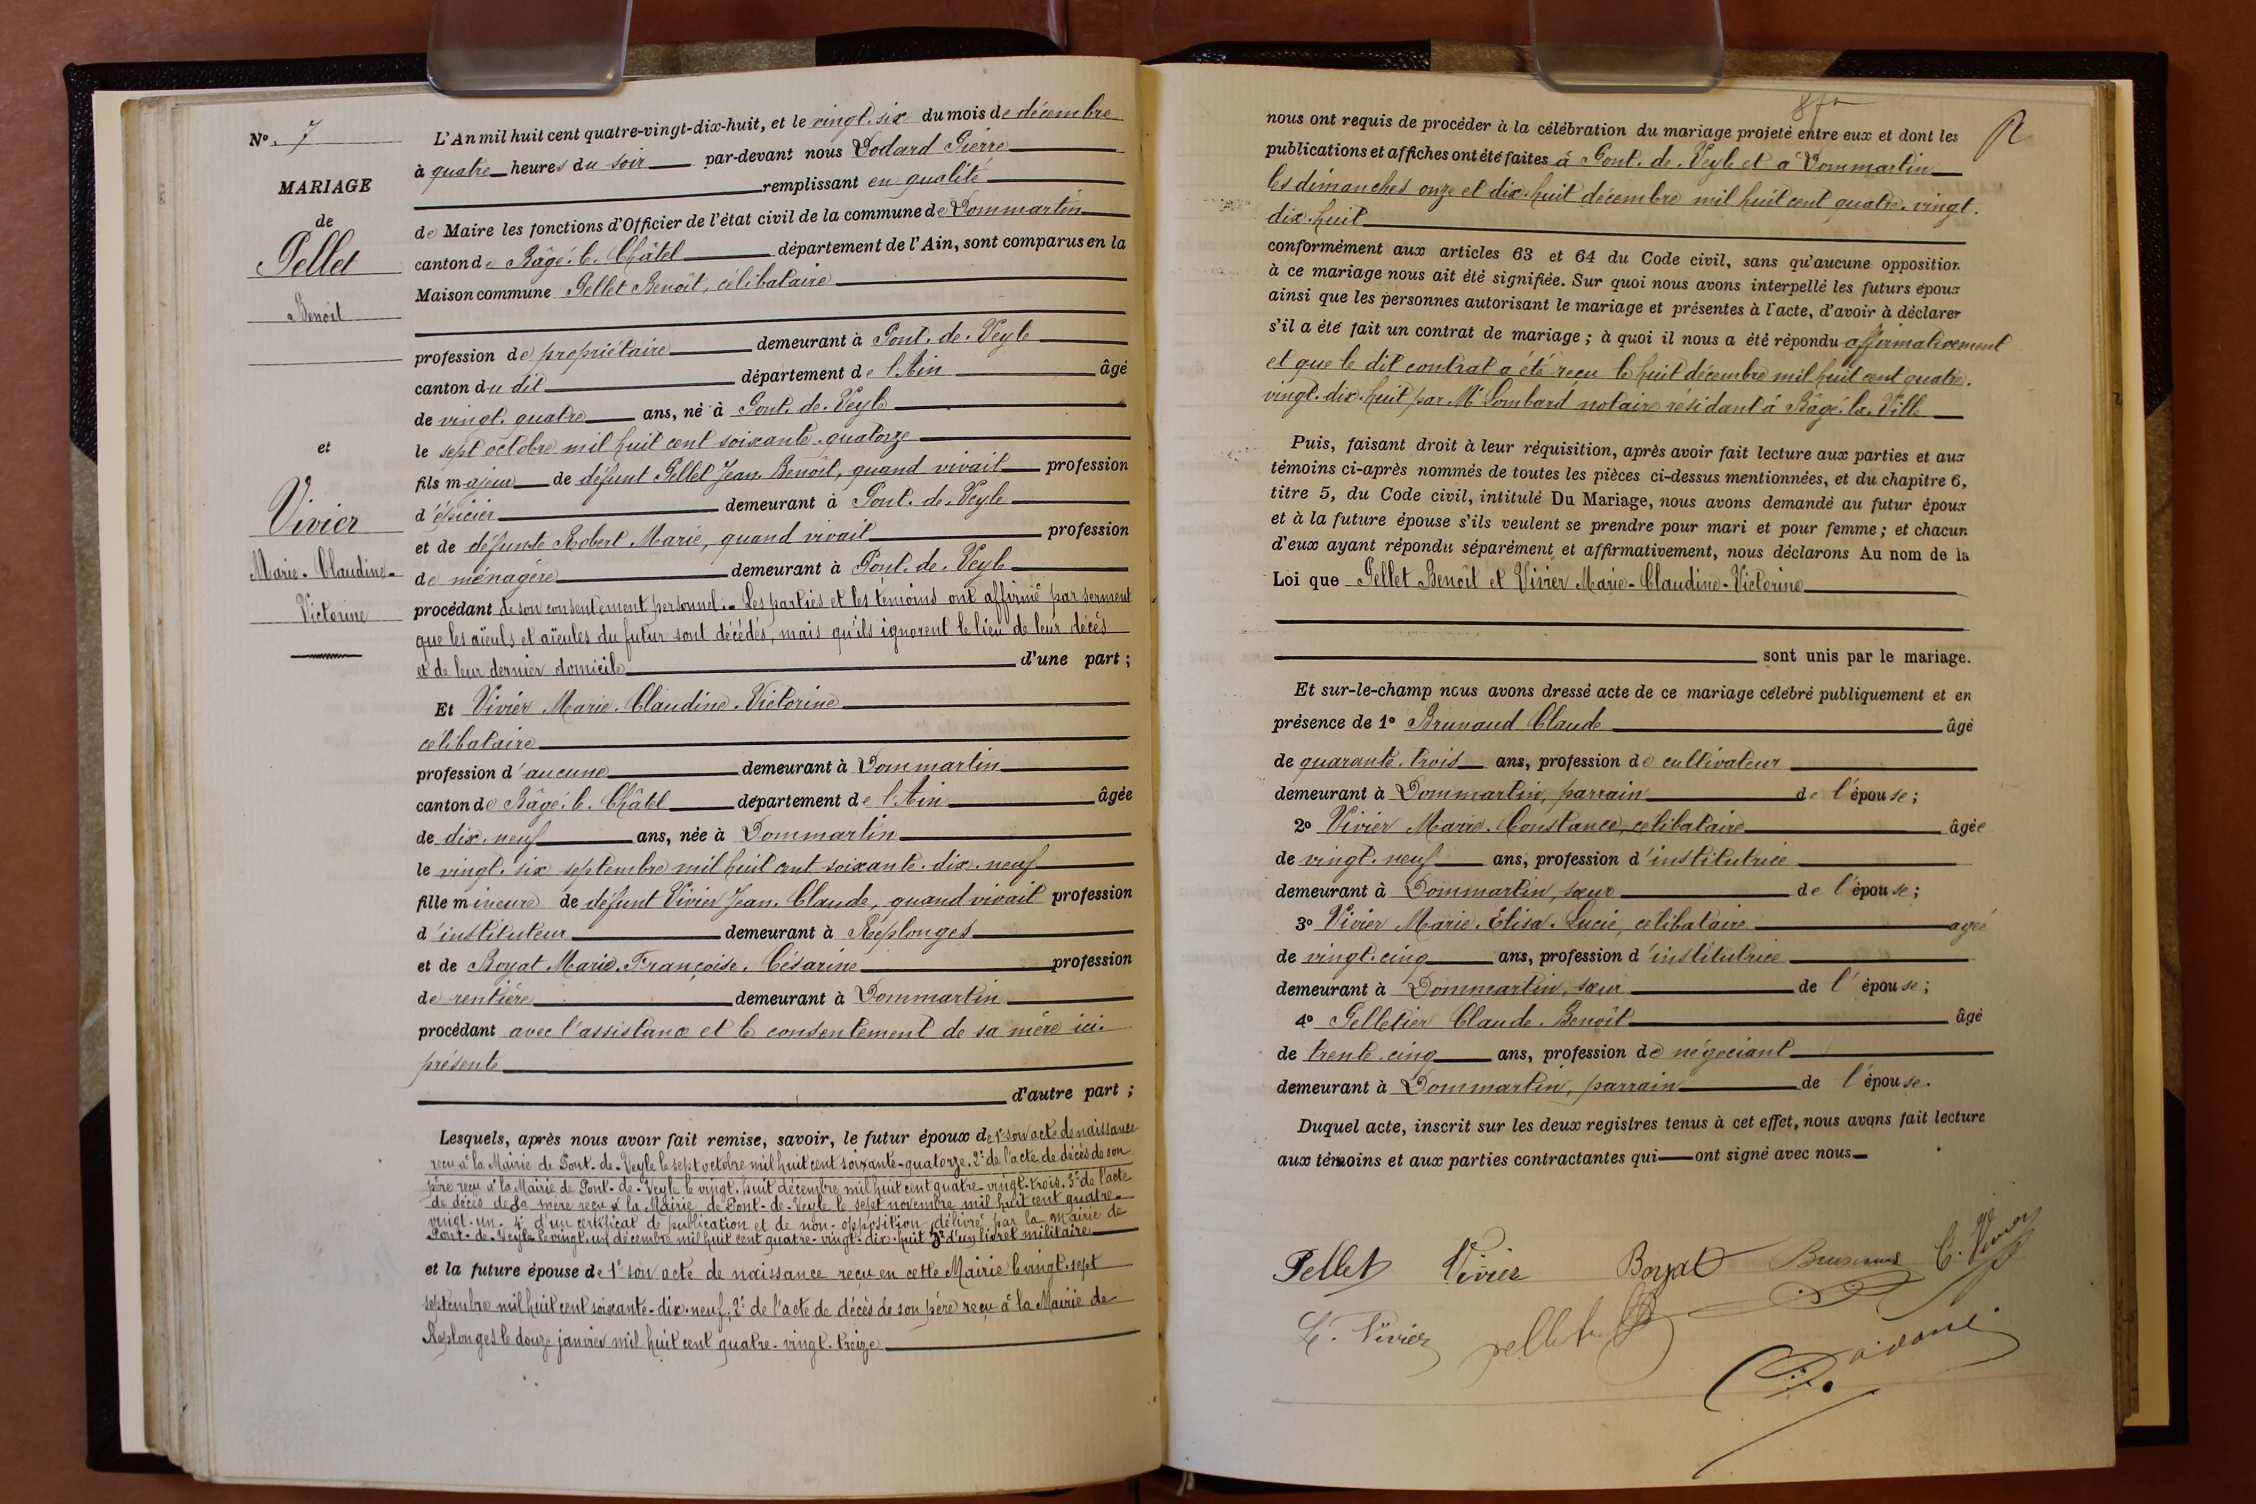 No. 7
MARIAGE
de
Pellet
Benoit
et
Vivier
Marie-Claudine-
Victorine
L'An mil huit cent quatre-vingt-dix-huit, et le vingt-six du mois de décembre
à quatre heures du soir par-devant nous Dodard Pierre
remplissant en qualité
de Maire les fonctions d'Officier de l'état civil de la commune de Dommartin
canton de Bâgé-le-Châtel département de l'Ain, sont comparus en la
Maison commune Pellet Benoît, célibataire
profession de propriétaire demeurant à Pont-de-Veyle
canton du dit département de l'Ain âgé
de vingt-quatre ans, né à Pont-de-Veyle
le sept octobre mil huit cent soixante-quatorze
fils majeur de défunt Pellet Jean-Benoît, quand vivait profession
d'épicier demeurant à Pont-de-Veyle
et de défunte Robert Marie, quand vivait profession
de ménagère demeurant à Pont-de-Veyle
procédant de son consentement personnel. - Les parties et les témoins ont affirmé par serment
que les aïeuls et aïeules du futur sont décédés, mais qu'ils ignorent le lieu de leur décès
et de leur dernier domicile d'une part ;
Et Vivier Marie-Claudine-Victorine
célibataire
profession d'aucune demeurant à Dommartin
canton de Bâgé-le-Châtel département de l'Ain âgée
de dix-neuf ans, née à Dommartin
le vingt-six septembre mil huit cent soixante-dix-neuf
fille mineure de défunt Vivier Jean-Claude, quand vivait profession
d'instituteur demeurant à Replonges
et de Boyat Marie-Françoise-Césarine profession
de rentière demeurant à Dommartin
procédant avec l'assistance et le consentement de sa mère ici-
présente
d'autre part ;
Lesquels, après nous avoir fait remise, savoir, le futur époux de 1° son acte de naissance
reçu à la Mairie de Pont-de-Veyle le sept octobre mil huit cent soixante-quatorze. 2° de l'acte de décès de son
père reçu à la Mairie de Pont-de-Veyle le vingt-huit décembre mil huit cent quatre-vingt-trois. 3° de l'acte
de décès de sa mère reçu à la Mairie de Pont-de-Veyle le sept novembre mil huit cent quatre-
vingt-un. 4° d'un certificat de publication et de non-opposition délivré par la Mairie de
Pont-de-Veyle le vingt-un décembre mil huit cent quatre-vingt-dix-huit 5° d'un livret militaire
et la future épouse de 1° son acte de naissance reçu en cette Mairie le vingt-sept
septembre mil huit cent soixante-dix-neuf, 2° de l'acte de décès de son père reçu à la Mairie de
Replonges le douze janvier mil huit cent quatre-vingt-treize
nous ont requis de procéder à la célébration du mariage projeté entre eux et dont les
publications et affiches ont été faites à Pont-de-Veyle et à Dommartin
les dimanches onze et dix-huit décembre mil huit cent quatre-vingt-
dix-huit
conformément aux articles 63 et 64 du Code civil, sans qu'aucune opposition
à ce mariage nous ait été signifiée. Sur quoi nous avons interpellé les futurs époux
ainsi que les personnes autorisant le mariage et présentes à l'acte, d'avoir à déclarer
s'il a été fait un contrat de mariage ; à quoi il nous a été répondu affirmativement
et que le dit contrat a été reçu le huit décembre mil huit cent quatre-
vingt-dix-huit par Me Lombard notaire résidant à Bâgé-la-Ville
Puis, faisant droit à leur réquisition, après avoir fait lecture aux parties et aux
témoins ci-après nommés de toutes les pièces ci-dessus mentionnées, et du chapitre 6,
titre 5, du Code civil, intitulé Du Mariage, nous avons demandé au futur époux
et à la future épouse s'ils veulent se prendre pour mari et pour femme ; et chacun
d'eux ayant répondu séparément et affirmativement, nous déclarons Au nom de la
Loi que Pellet Benoît et Vivier Marie-Claudine-Victorine
sont unis par le mariage.
Et sur-le-champ nous avons dressé acte de ce mariage célébré publiquement et en
présence de 1° Brunaud Claude âgé
de quarante-trois ans, profession de cultivateur
demeurant à Dommartin, parrain de l'épouse ;
2° Vivier Marie-Constance, célibataire âgée
de vingt-neuf ans, profession d'institutrice
demeurant à Dommartin, sœur de l'épouse ;
3° Vivier Marie-Elisa-Lucie, célibataire agée
de vingt-cinq ans, profession d'institutrice
demeurant à Dommartin, sœur de l'épouse ;
4° Pelletier Claude-Benoît âgé
de trente-cinq ans, profession de négociant
demeurant à Dommartin, parrain de l'épouse.
Duquel acte, inscrit sur les deux registres tenus à cet effet, nous avons fait lecture
aux témoins et aux parties contractantes qui ont signé avec nous
Pellet Vivier Boyat C. Vivier
L. Vivier